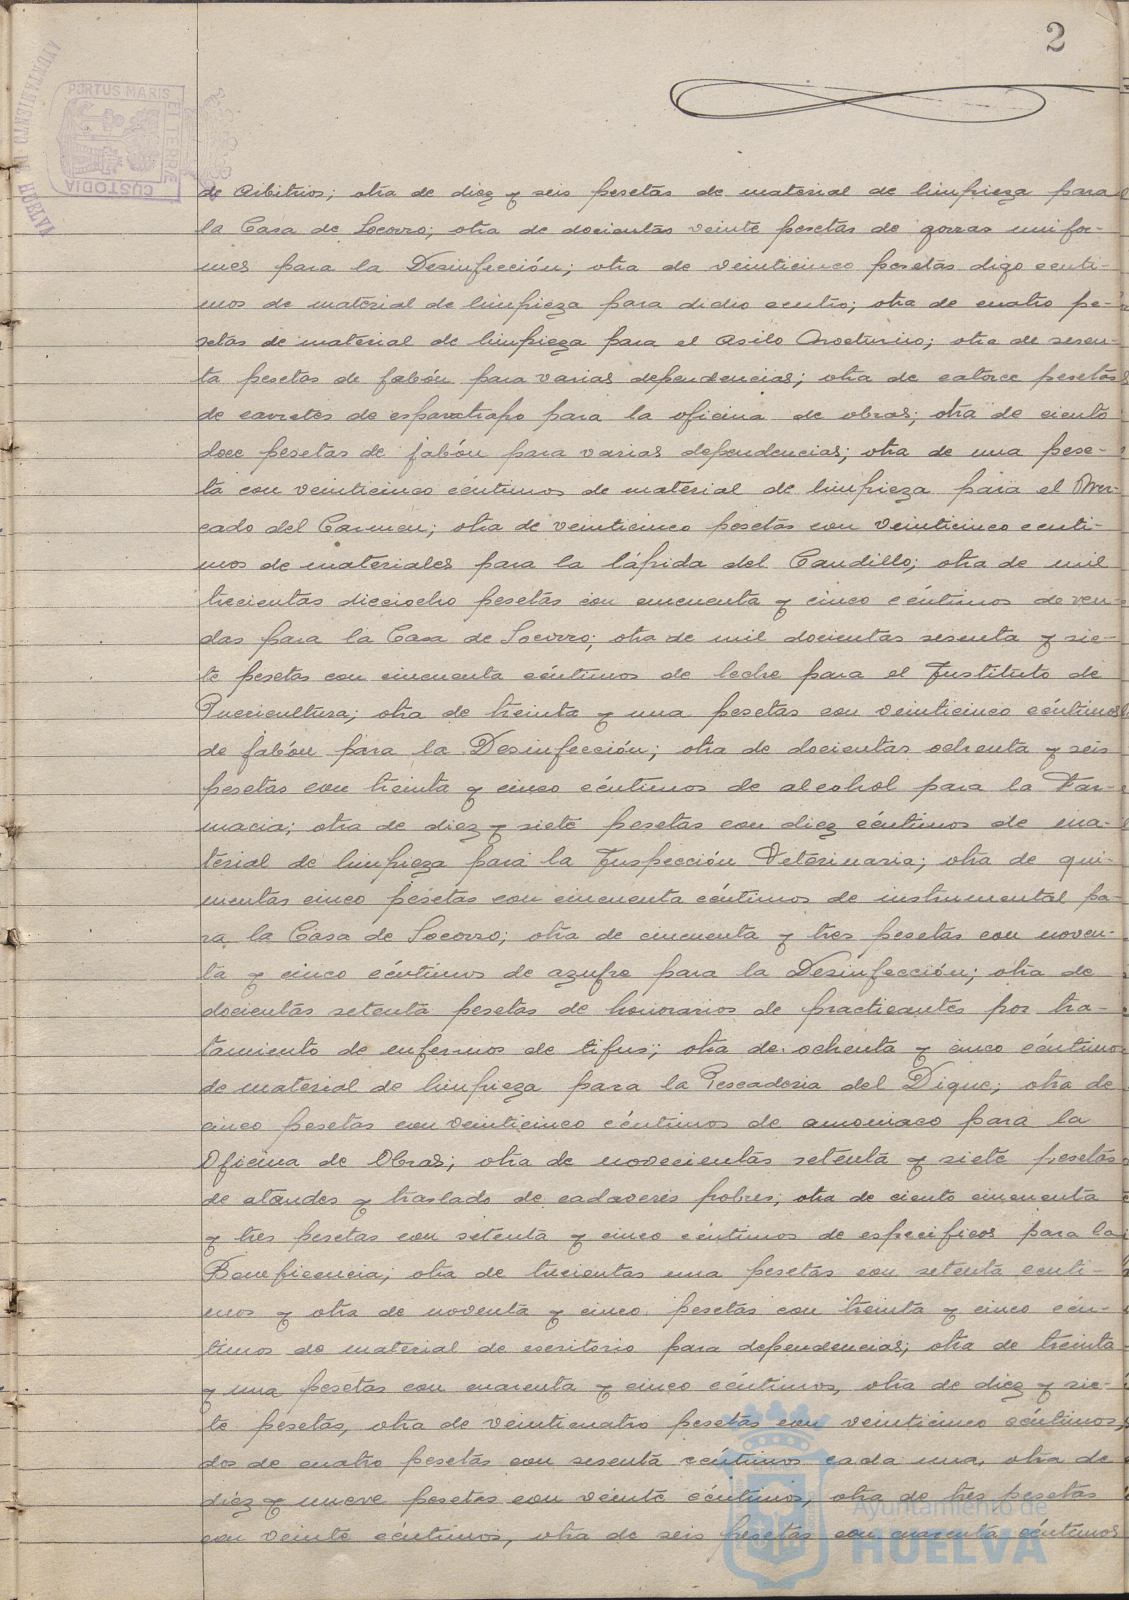 2
AYUNTAMIENTO DE HUELVA
PORTUS MARIS
ET TERRE
CUSTODIA
de Arbitrios; otra de diez y seis pesetas de material de limpieza para
la Casa de Socorro; otra de docientas veinte pesetas de gorras unifor-
mes para la Desinfección; otra de veinticinco pesetas digo centi-
mos de material de limpieza para dicho centro; otra de cuatro pe-
setas de material de limpieza para el Asilo Nocturno; otra de sesen-
ta pesetas de jabón para varias dependencias; otra de catorce pesetas
de carretes de esparatrapo para la oficina de obras; otra de ciento
doce pesetas de jabón para varias dependencias; otra de una pese-
ta con veinticinco céntimos de material de limpieza para el Mer-
cado del Carmen; otra de veinticinco pesetas con veinticinco centi-
mos de materiales para la lápida del Caudillo; otra de mil
trecientas dieciocho pesetas con cincuenta y cinco céntimos de ven-
das para la Casa de Socorro; otra de mil docientas sesenta y sie-
te pesetas con cincuenta céntimos de leche para el Instituto de
Puericultura; otra de treinta y una pesetas con veinticinco céntimos
de jabón para la Desinfección; otra de docientas ochenta y seis
pesetas con treinta y cinco céntimos de alcohol para la Far-
macia; otra de diez y siete pesetas con diez céntimos de ma-
terial de limpieza para la Inspección Veterinaria; otra de qui-
nientas cinco pesetas con cincuenta céntimos de instrumental pa-
ra la Casa de Socorro; otra de cincuenta y tres pesetas con noven-
ta y cinco céntimos de azufre para la Desinfección; otra de
docientas setenta pesetas de honorarios de practicantes por tra-
tamiento de enfermos de tifus; otra de ochenta y cinco céntimos
de material de limpieza para la Pescaderia del Dique; otra de
cinco pesetas con veinticinco céntimos de amoniaco para la
Oficina de Obras; otra de novecientas setenta y siete pesetas
de ataudes y traslado de cadaveres pobres; otra de ciento cincuenta
y tres pesetas con setenta y cinco céntimos de especificos para la
Beneficencia; otra de trecientas una pesetas con setenta centi-
mos y otra de noventa y cinco pesetas con treinta y cinco cén-
timos de material de escritorio para dependencias; otra de treinta
y una pesetas con cuarenta y cinco céntimos, otra de diez y sie-
te pesetas, otra de veinticuatro pesetas con veinticinco céntimos,
dos de cuatro pesetas con sesenta céntimos cada una, otra de
diez y nueve pesetas con veinte céntimos, otra de tres pesetas
con veinte céntimos, otra de seis pesetas con cuarenta céntimos
Ayuntamiento de
HUELVA